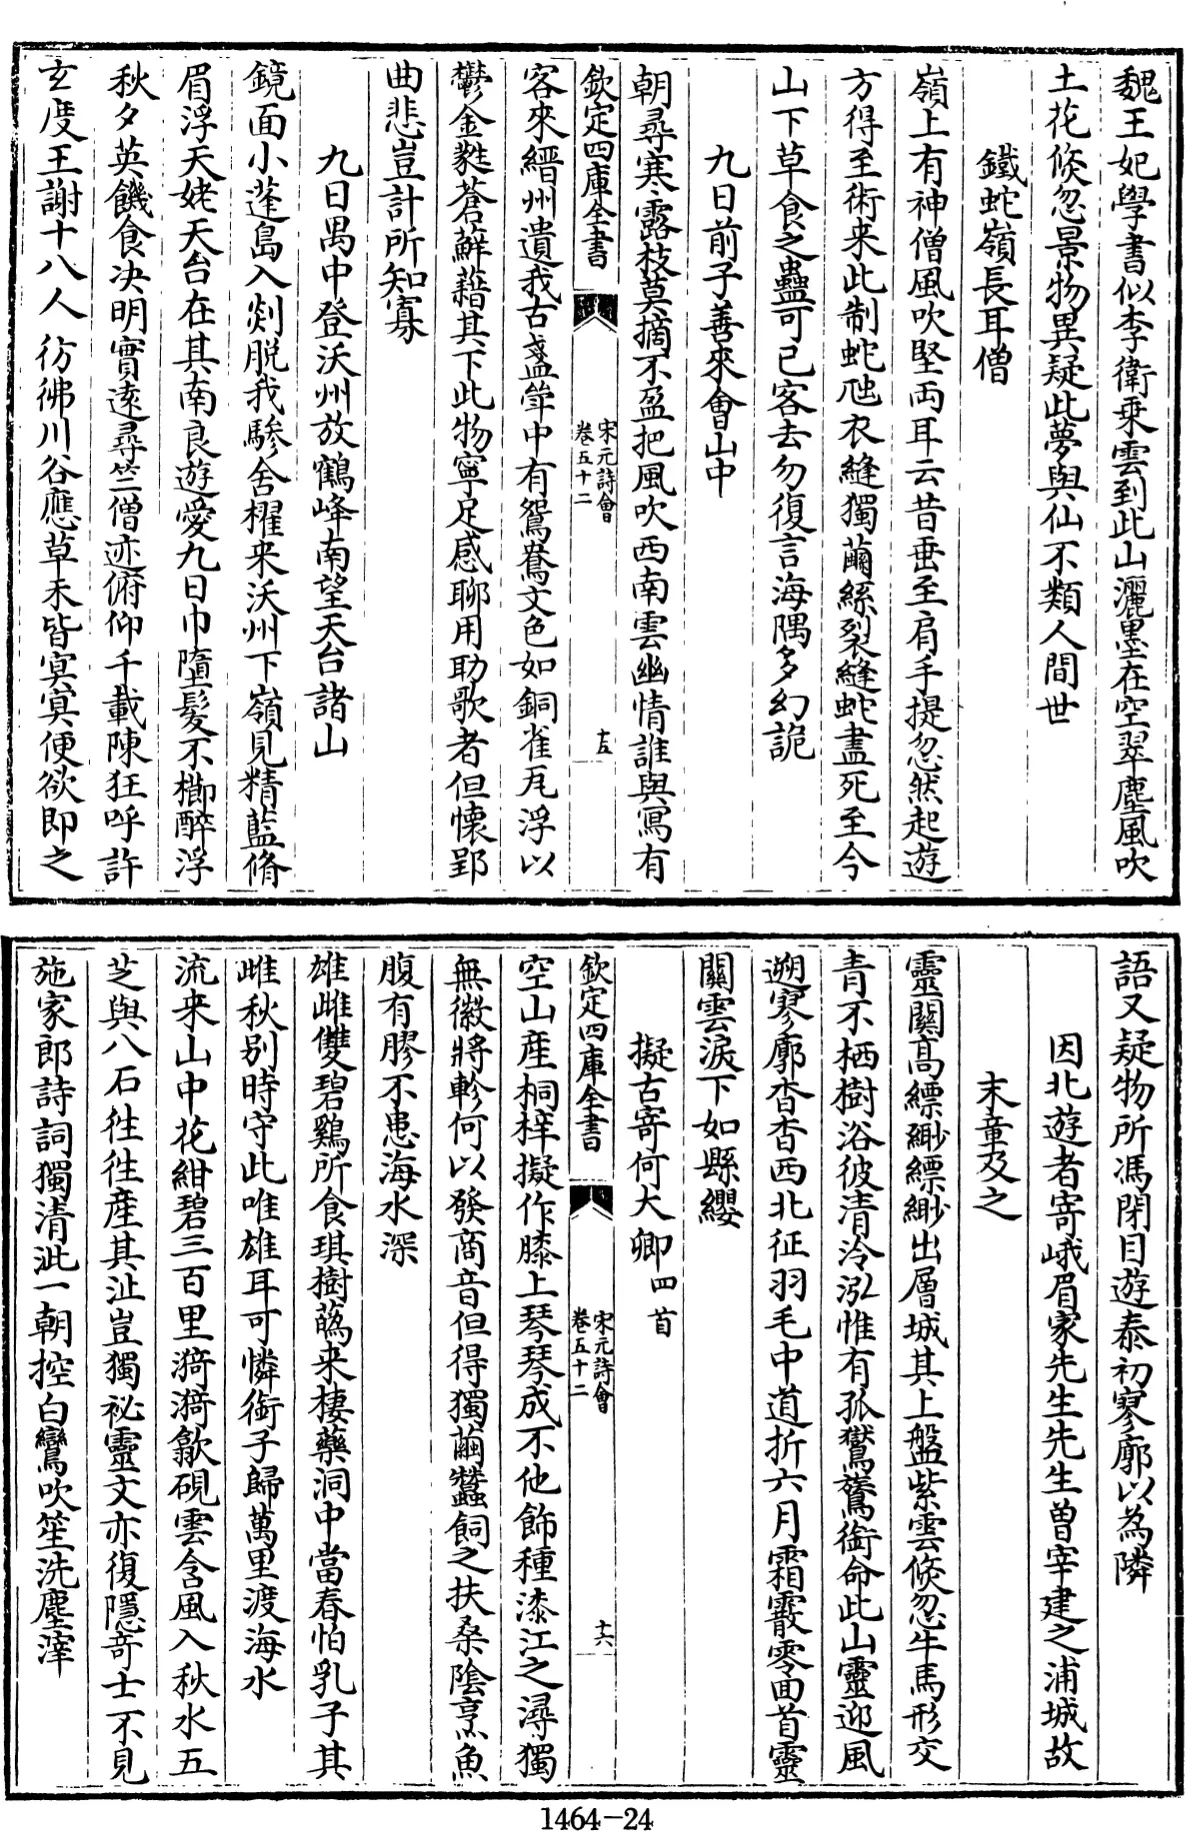 魏王妃學書似李衛乗雲到此山灑墨在空翠塵風吹
土花倐忽景物異疑此夢與仙不類人間世
鐵蛇嶺長耳僧
嶺上有神僧風吹堅両耳云昔垂至肩手提忽然起遊
方得至術来此制蛇虺衣縫獨繭絲裂縫蛇盡死至今
山下草食之蠱可已客去勿復言海隅多幻詭
九日前子善來會山中
朝尋寒露枝莫摘不盈把風吹西南雲幽情誰與寫有
欽定四庫全書
宋元詩會
卷五十二
十五
客來縉州遺我古盞斝中有鴛鴦文色如銅雀瓦浮以
鬱金蕤蒼蘚藉其下此物寧足感聊用助歌者但懐郢
曲悲豈計所知寡
九日禺中登沃州放鶴峰南望天台諸山
鏡面小蓬島入剡脱我驂舍櫂来沃州下嶺見精藍脩
眉浮天姥天台在其南良遊愛九日巾墮髮不櫛醉浮
秋夕英饑食决明實逺尋竺僧迹俯仰千載陳狂呼許
玄度王謝十八人彷彿川谷應草禾皆㝠㝠便欲即之
語又疑物所馮閉目遊泰初寥廓以為隣
因北遊者寄峨眉家先生先生曽宰建之浦城故
末章及之
靈關高縹緲縹緲出層城其上盤紫雲倐忽牛馬形交
青不栖樹浴彼清泠泓惟有孤鸑鷟銜命此山靈迎風
遡寥廓杳杳西北征羽毛中道折六月霜霰零面首靈
關雲淚下如縣纓
擬古寄何大卿四首
欽定四庫全書
宋元詩會
卷五十二
十六
空山産桐梓擬作膝上琴琴成不他飾種漆江之潯獨
無徽將軫何以發商音但得獨繭蠶飼之扶桑陰烹魚
腹有膠不患海水深
雄雌雙碧鷄所食琪樹蘤来棲藥洞中當春怕乳子其
雌秋别時守此唯雄耳可憐銜子歸萬里渡海水
流来山中花紺碧三百里漪漪歙硯雲含風入秋水五
芝與八石往往産其沚豈獨祕靈文亦復隱竒士不見
施家郎詩詞獨清泚一朝控白鸞吹笙洗塵滓
1464-24